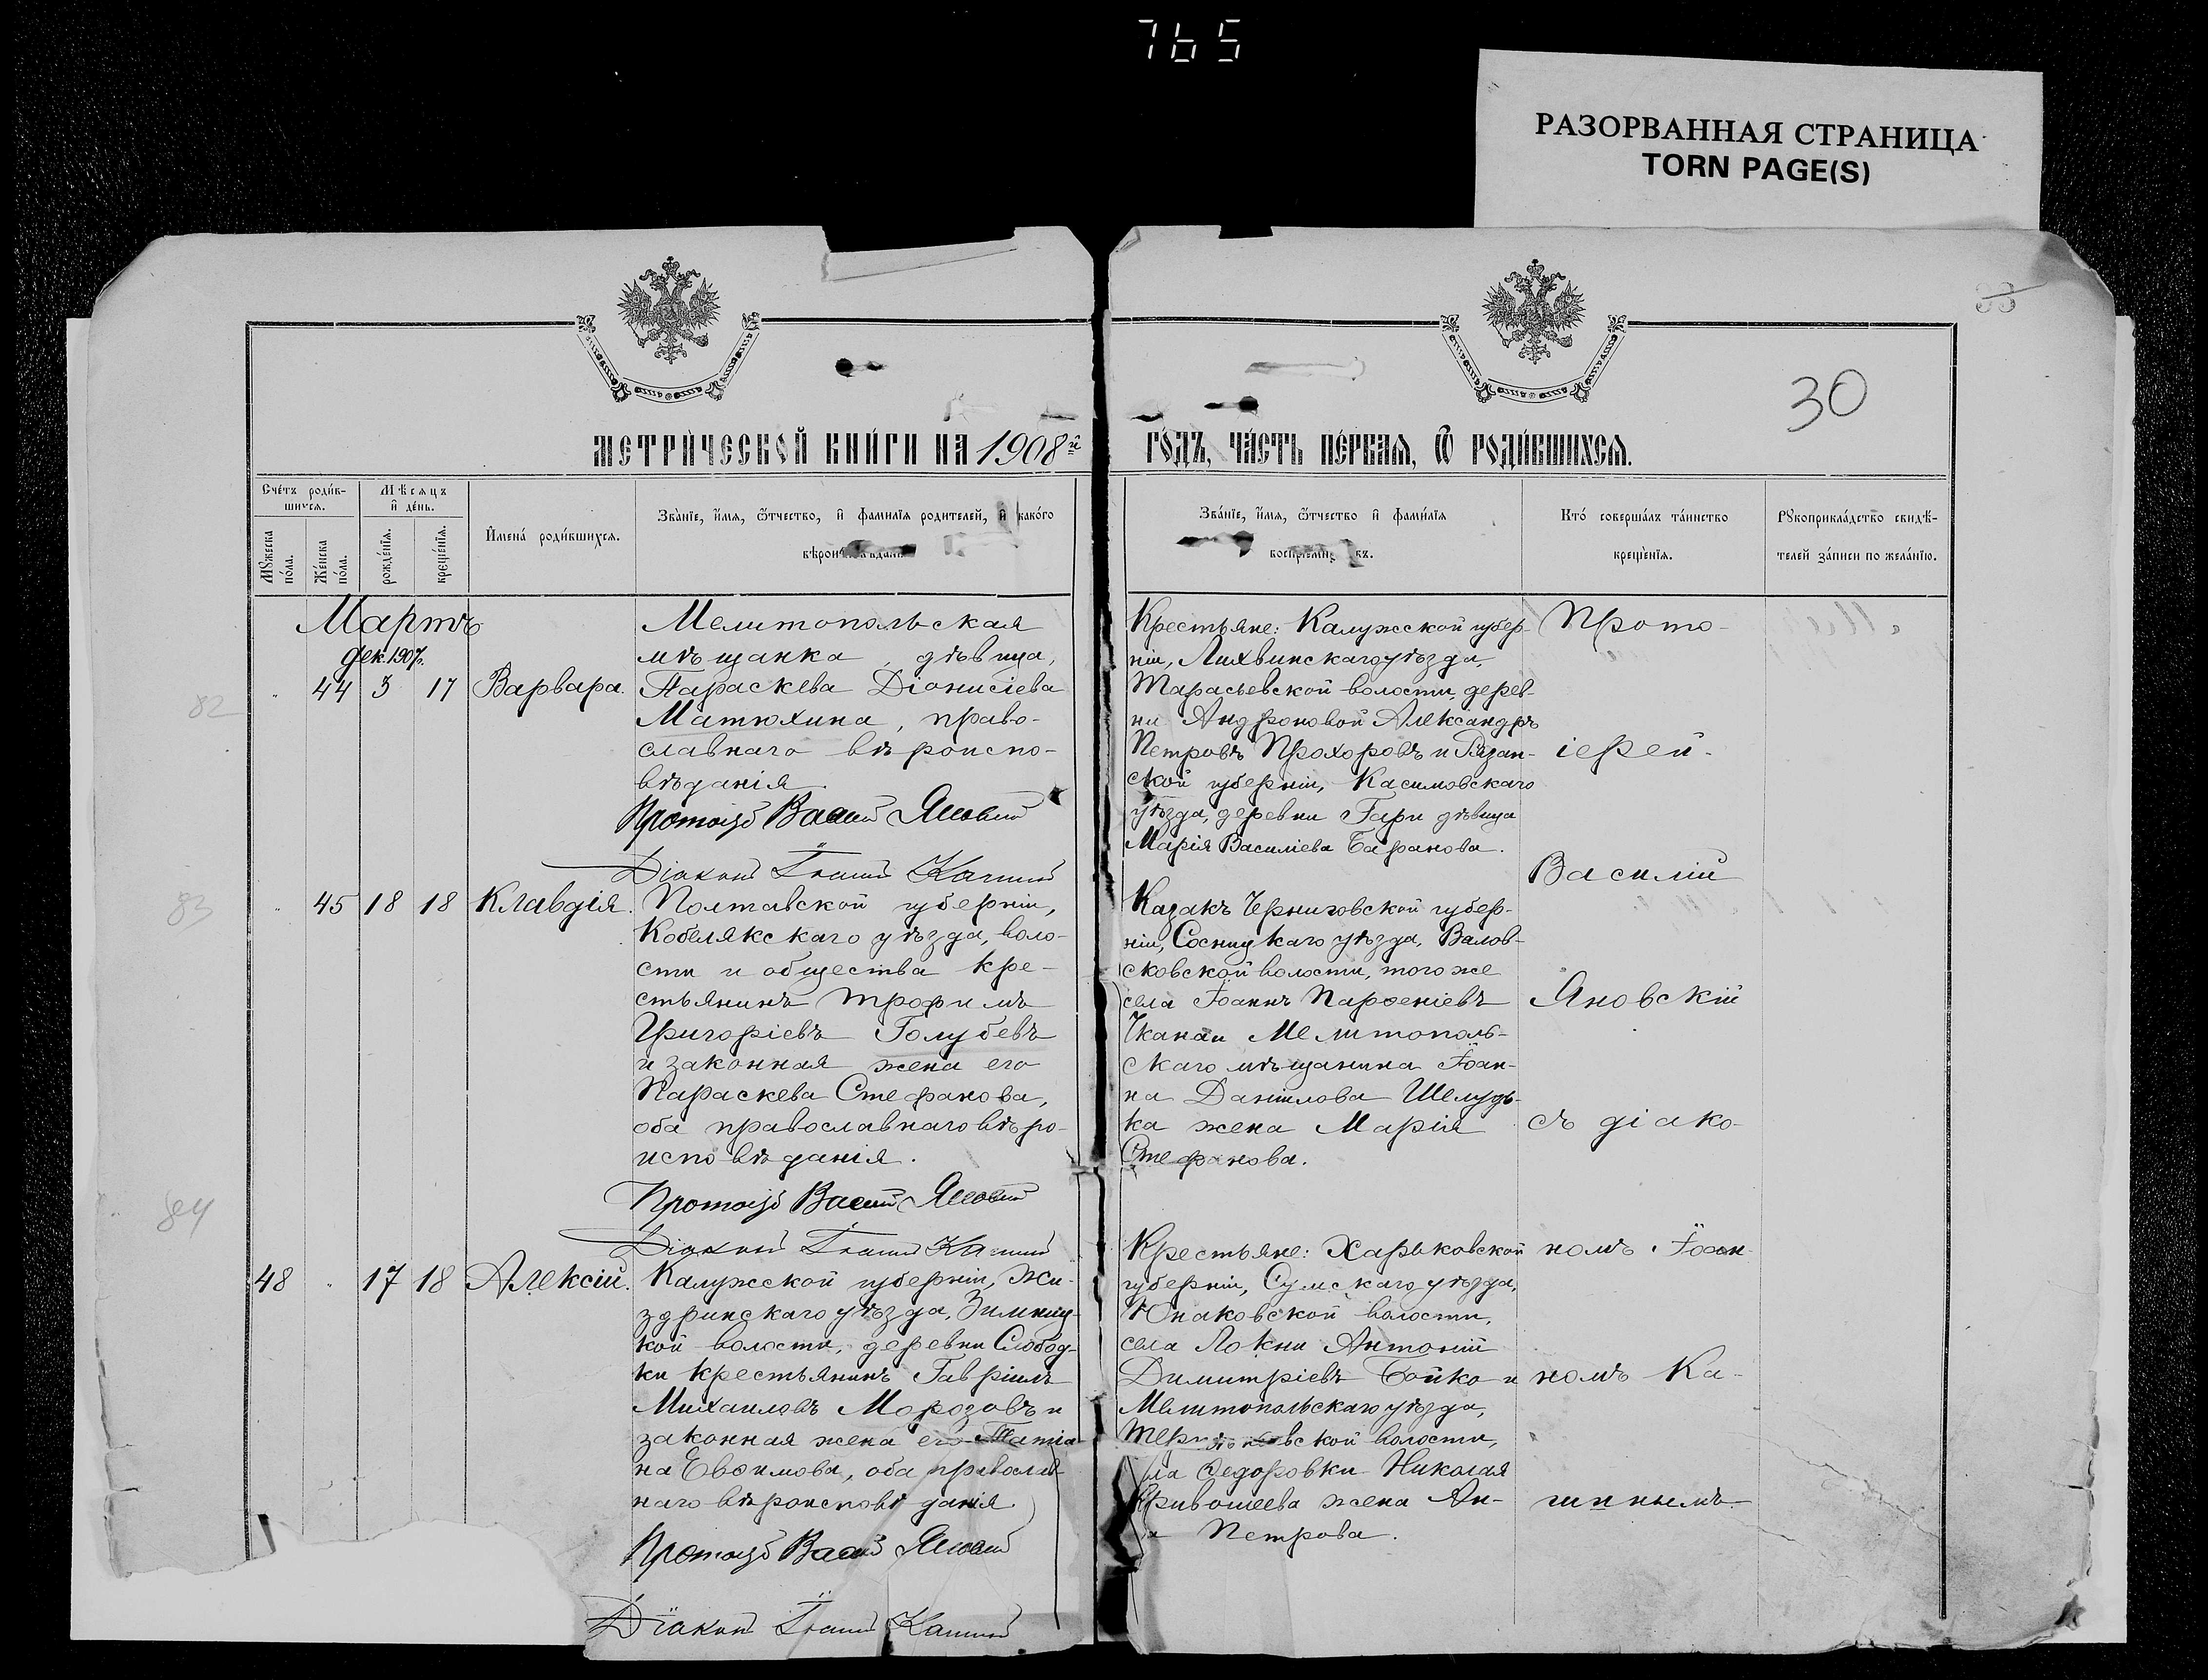 765
РАЗОРВАННАЯ СТРАНИЦА
TORN PAGE(S)
33
30
МЕТРИ́ЧЕСКОЙ КНИ́ГИ НА 1908й
ГО́ДЪ, ЧА́СТЬ ПЕ́РВАѦ, Ѿ РОДИ́ВШИХСѦ.
Сче́тъ роди́в-
шихсѧ.
Мѣ́сѧцъ
и҆ де́нь.
Мꙋ́жеска
по́ла.
Же́нска
по́ла.
рожде́нїѧ.
креще́нїѧ.
И҆мена̀ роди́вшихсѧ.
Зва́нїе, и҆́мѧ, ѻ҆́тчество, и҆ фами́лїѧ роди́телей, и҆ како́го
Зва́нїе, и҆́мѧ, ѻ҆́тчество и҆ фами́лїѧ
воспрїе́мник въ.
Кто̀ соверша́лъ та́инство
креще́нїѧ.
Рꙋкоприкла́дство свидѣ́-
телей за́писи по жела́нїю.
Мартъ
Дек. 1907г.
82
" 44 3 17 Варвара.
Мелитопольская
мѣщанка, дѣвица,
Параскева Діонисіева
Матюхина, право-
славнаго вѣроиспо-
вѣданія.
Протоіер Васил Яновскій
Діаконъ Іоаннъ Ка
Крестьяне: Калужской губер-
ніи, Лихвинскаго уѣзда,
Тарасьевской волости, дерев-
ни Андроновой Александръ
Петровъ Прохоровъ и Рязан-
ской губерніи, Касимовскаго
уѣзда, деревни Гари дѣвица
Марія Василіева Баранова.
83
" 45 18 18 Клавдія.
Полтавской губерніи,
Кобелякскаго уѣзда, воло-
сти и общества кре-
стьянинъ Трофимъ
Григоріевъ Голубевъ
и законная жена его
Параскева Стефанова,
оба православнаго вѣро-
исповѣданія.
Протоіер Васил Яновскій
Діаконъ Іоаннъ Ка
Казакъ Черниговской губер-
ніи, Сосницкаго уѣзда, Валов-
сковской волости, того же
села Іоаннъ Парѳеніевъ
Ткачъ и Мелитополь-
скаго мѣщанина Іоан-
на Даніилова Шелудь-
ка жена Марія
Стефанова.
84
48 " 17 18 Алексій.
Калужской губерніи, Жи-
здринскаго уѣзда, Зимниц-
кой волости, деревни Слобод-
ки крестьянинъ Гавріилъ
Михаиловъ Морозовъ и
законная жена его Татіа-
на Евѳимова, оба православ-
наго вѣроисповѣданія.
Протоіер Васил Яновскій
Діаконъ Іоаннъ Ка
Крестьяне: Харьковской
губерніи, Сумскаго уѣзда,
Юнаковской волости,
села Локни Антоній
Димитріевъ Бойко и
Мелитопольскаго уѣзда,
вской волости,
ла Ѳедоровки Николая
Кривошеева жена Ан-
а Петрова.
Прото-
іерей
Василій
Яновскій
съ діако-
номъ Іоан-
номъ Ка-